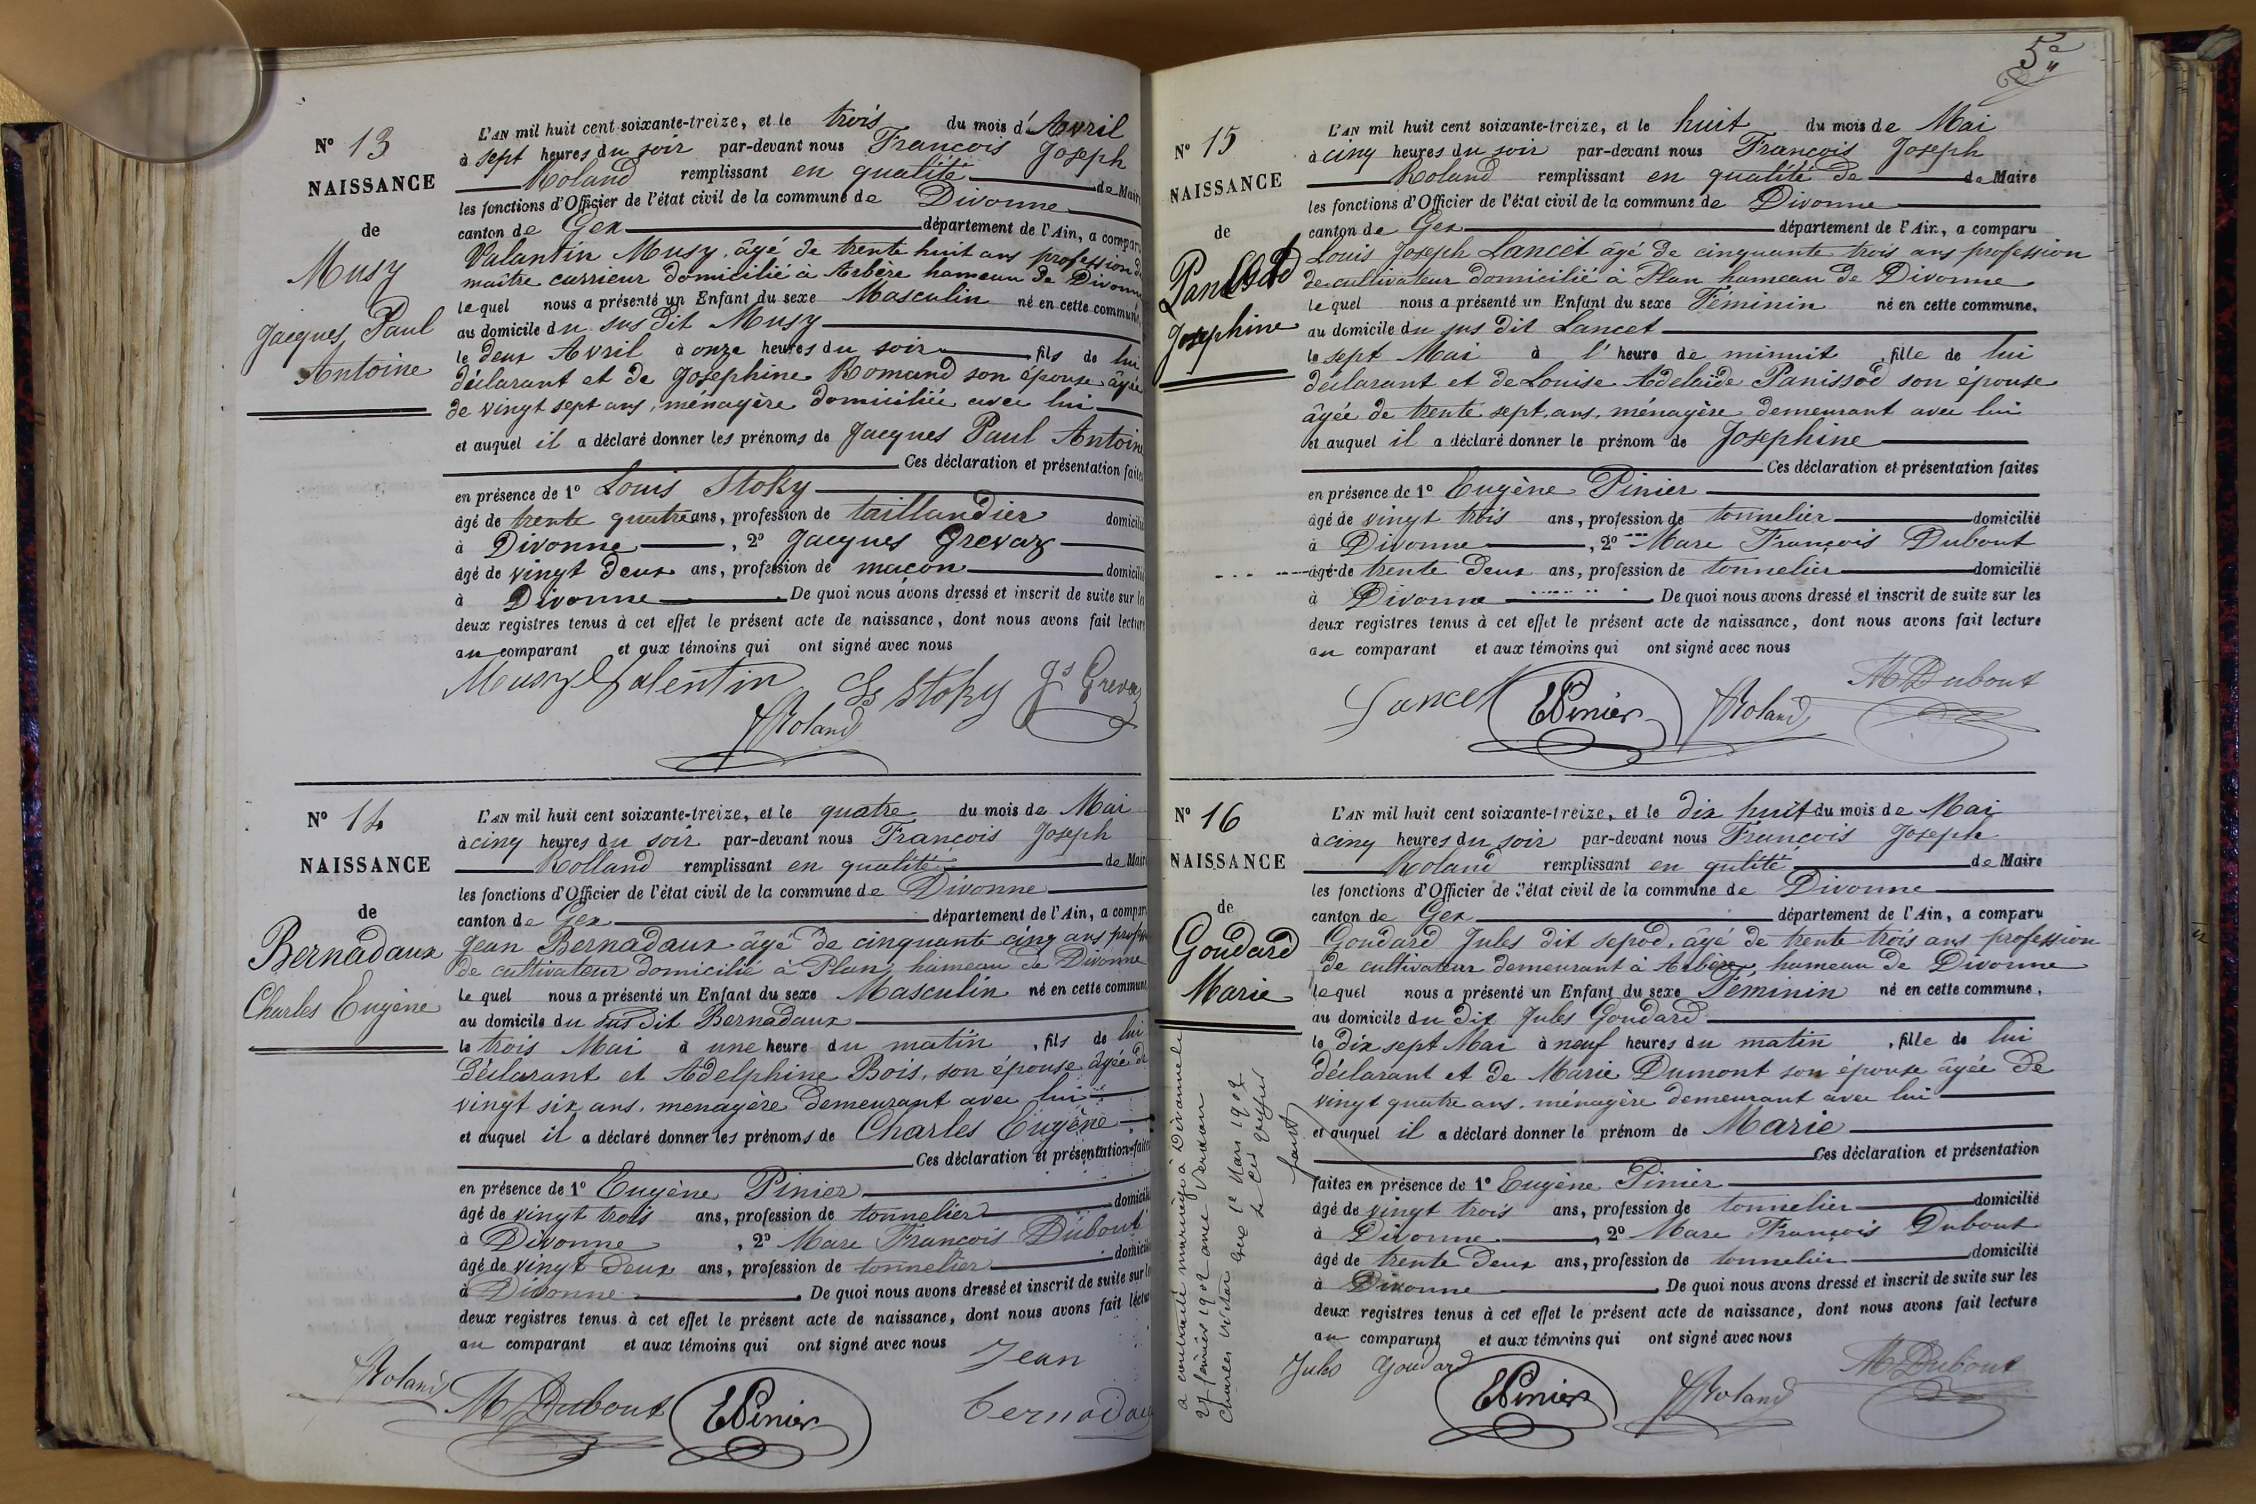 Nº 13
NAISSANCE
de
Musy
Jacques, Paul
Antoine
L'AN mil huit cent soixante-treize, et le trois du mois d'Avril
à sept heures du soir par-devant nous François Joseph
Roland remplissant en qualité de Maire
les fonctions d'Officier de l'état civil de la commune de Divonne
canton de Gex département de l'Ain, a comparu
Valantin Musy, âgé de trente huit ans profession de
maître carrieur domicilié à Arbère hameau de Divonne
lequel nous a présenté un Enfant du sexe Masculin né en cette commune,
au domicile du sus dit Musy
le deux Avril à onze heures du soir fils de lui
déclarant et de Josephine Romand son épouse âgée
de vingt sept ans, ménagère domiciliée avec lui
et auquel il a déclaré donner les prénoms de Jacques Paul Antoine
Ces déclaration et présentation faites
en présence de 1º Louis Stoky
âgé de trente quatre ans, profession de taillandier domicilié
à Divonne, 2º Jacques Grevaz
âgé de vingt deux ans, profession de maçon domicilié
à Divonne. De quoi nous avons dressé et inscrit de suite sur les
deux registres tenus à cet effet le présent acte de naissance, dont nous avons fait lecture
au comparant et aux témoins qui ont signé avec nous
Musy Valentin Ls Stoky Js Grevaz
Roland
Nº 14
NAISSANCE
de
Bernadaux
Charles Eugène
L'AN mil huit cent soixante-treize, et le quatre du mois de Mai
à cinq heures du soir par-devant nous François Joseph
Rolland remplissant en qualité de Maire
les fonctions d'Officier de l'état civil de la commune de Divonne
canton de Gex département de l'Ain, a comparu
Jean Bernadaux âgé de cinquante cinq ans profession
de cultivateur domicilié à Plan, hameau de Divonne
lequel nous a présenté un Enfant du sexe Masculin né en cette commune,
au domicile du sus dit Bernadaux
le trois Mai à une heure du matin, fils de lui
déclarant et Adelphine Bois, son épouse âgée de
vingt six ans, menagère demeurant avec lui
et auquel il a déclaré donner les prénoms de Charles Eugène
Ces déclaration et présentation faites
en présence de 1º Eugène Pinier
âgé de vingt trois ans, profession de tonnelier domicilié
à Divonne, 2º Marc François Dubout
âgé de vingt deux ans, profession de tonnelier domicilié
à Divonne. De quoi nous avons dressé et inscrit de suite sur les
deux registres tenus à cet effet le présent acte de naissance, dont nous avons fait lecture
au comparant et aux témoins qui ont signé avec nous
Roland M Dubout EPinier Jean
bernadaux
5e
Nº 15
NAISSANCE
de
Josephine
L'AN mil huit cent soixante-treize, et le huit du mois de Mai
à cinq heures du soir par-devant nous François Joseph
Roland remplissant en qualité de de Maire
les fonctions d'Officier de l'état civil de la commune de Divonne
canton de Gex département de l'Ain, a comparu
Louis Joseph Lancet âgé de cinquante trois ans profession
de cultivateur domicilié à Plan hameau de Divonne
lequel nous a présenté un Enfant du sexe Féminin né en cette commune.
au domicile du sus dit Lancet
le sept Mai à l'heure de minuit, fille de lui
déclarant et de Louise Adelaïde Panissod son épouse
âgée de trente sept ans, ménagère demeurant avec lui
et auquel il a déclaré donner le prénom de Josephine
Ces déclaration et présentation faites
en présence de 1º Eugène Pinier
âgé de vingt trois ans, profession de tonnelier domicilié
à Divonne, 2º Marc François Dubout
âgé de trente deux ans, profession de tonnelier domicilié
à Divonne. De quoi nous avons dressé et inscrit de suite sur les
deux registres tenus à cet effet le présent acte de naissance, dont nous avons fait lecture
au comparant et aux témoins qui ont signé avec nous
Lancet EPinier Roland M Dubout
Nº 16
NAISSANCE
de
Goudard
Marie
L'AN mil huit cent soixante-treize, et le dix huit du mois de Mai
à cinq heures du soir par-devant nous François Joseph
Roland remplissant en qulité de Maire
les fonctions d'Officier de l'état civil de la commune de Divonne
canton de Gex département de l'Ain, a comparu
Goudard Jules dit sepod, âgé de trente trois ans profession
de cultivateur demeurant à Arbère, hameau de Divonne
lequel nous a présenté un Enfant du sexe Féminin né en cette commune,
au domicile du dit Jules Goudard
le dix sept Mai à neuf heures du matin, fille de lui
déclarant et de Marie Dumont son épouse âgée de
vingt quatre ans, ménagère demeurant avec lui
et auquel il a déclaré donner le prénom de Marie
Ces déclaration et présentation
faites en présence de 1º Eugène Pinier
âgé de vingt trois ans, profession de tonnelier domicilié
à Divonne, 2º Marc François Dubout
âgé de trente deux ans, profession de tonnelier domicilié
à Divonne. De quoi nous avons dressé et inscrit de suite sur les
deux registres tenus à cet effet le présent acte de naissance, dont nous avons fait lecture
au comparant et aux témoins qui ont signé avec nous
Jules Goudard EPinier Roland M Dubout
a contracté mariage à Divonne le
27 février 1902 avec
Charles 1er Mars 1902